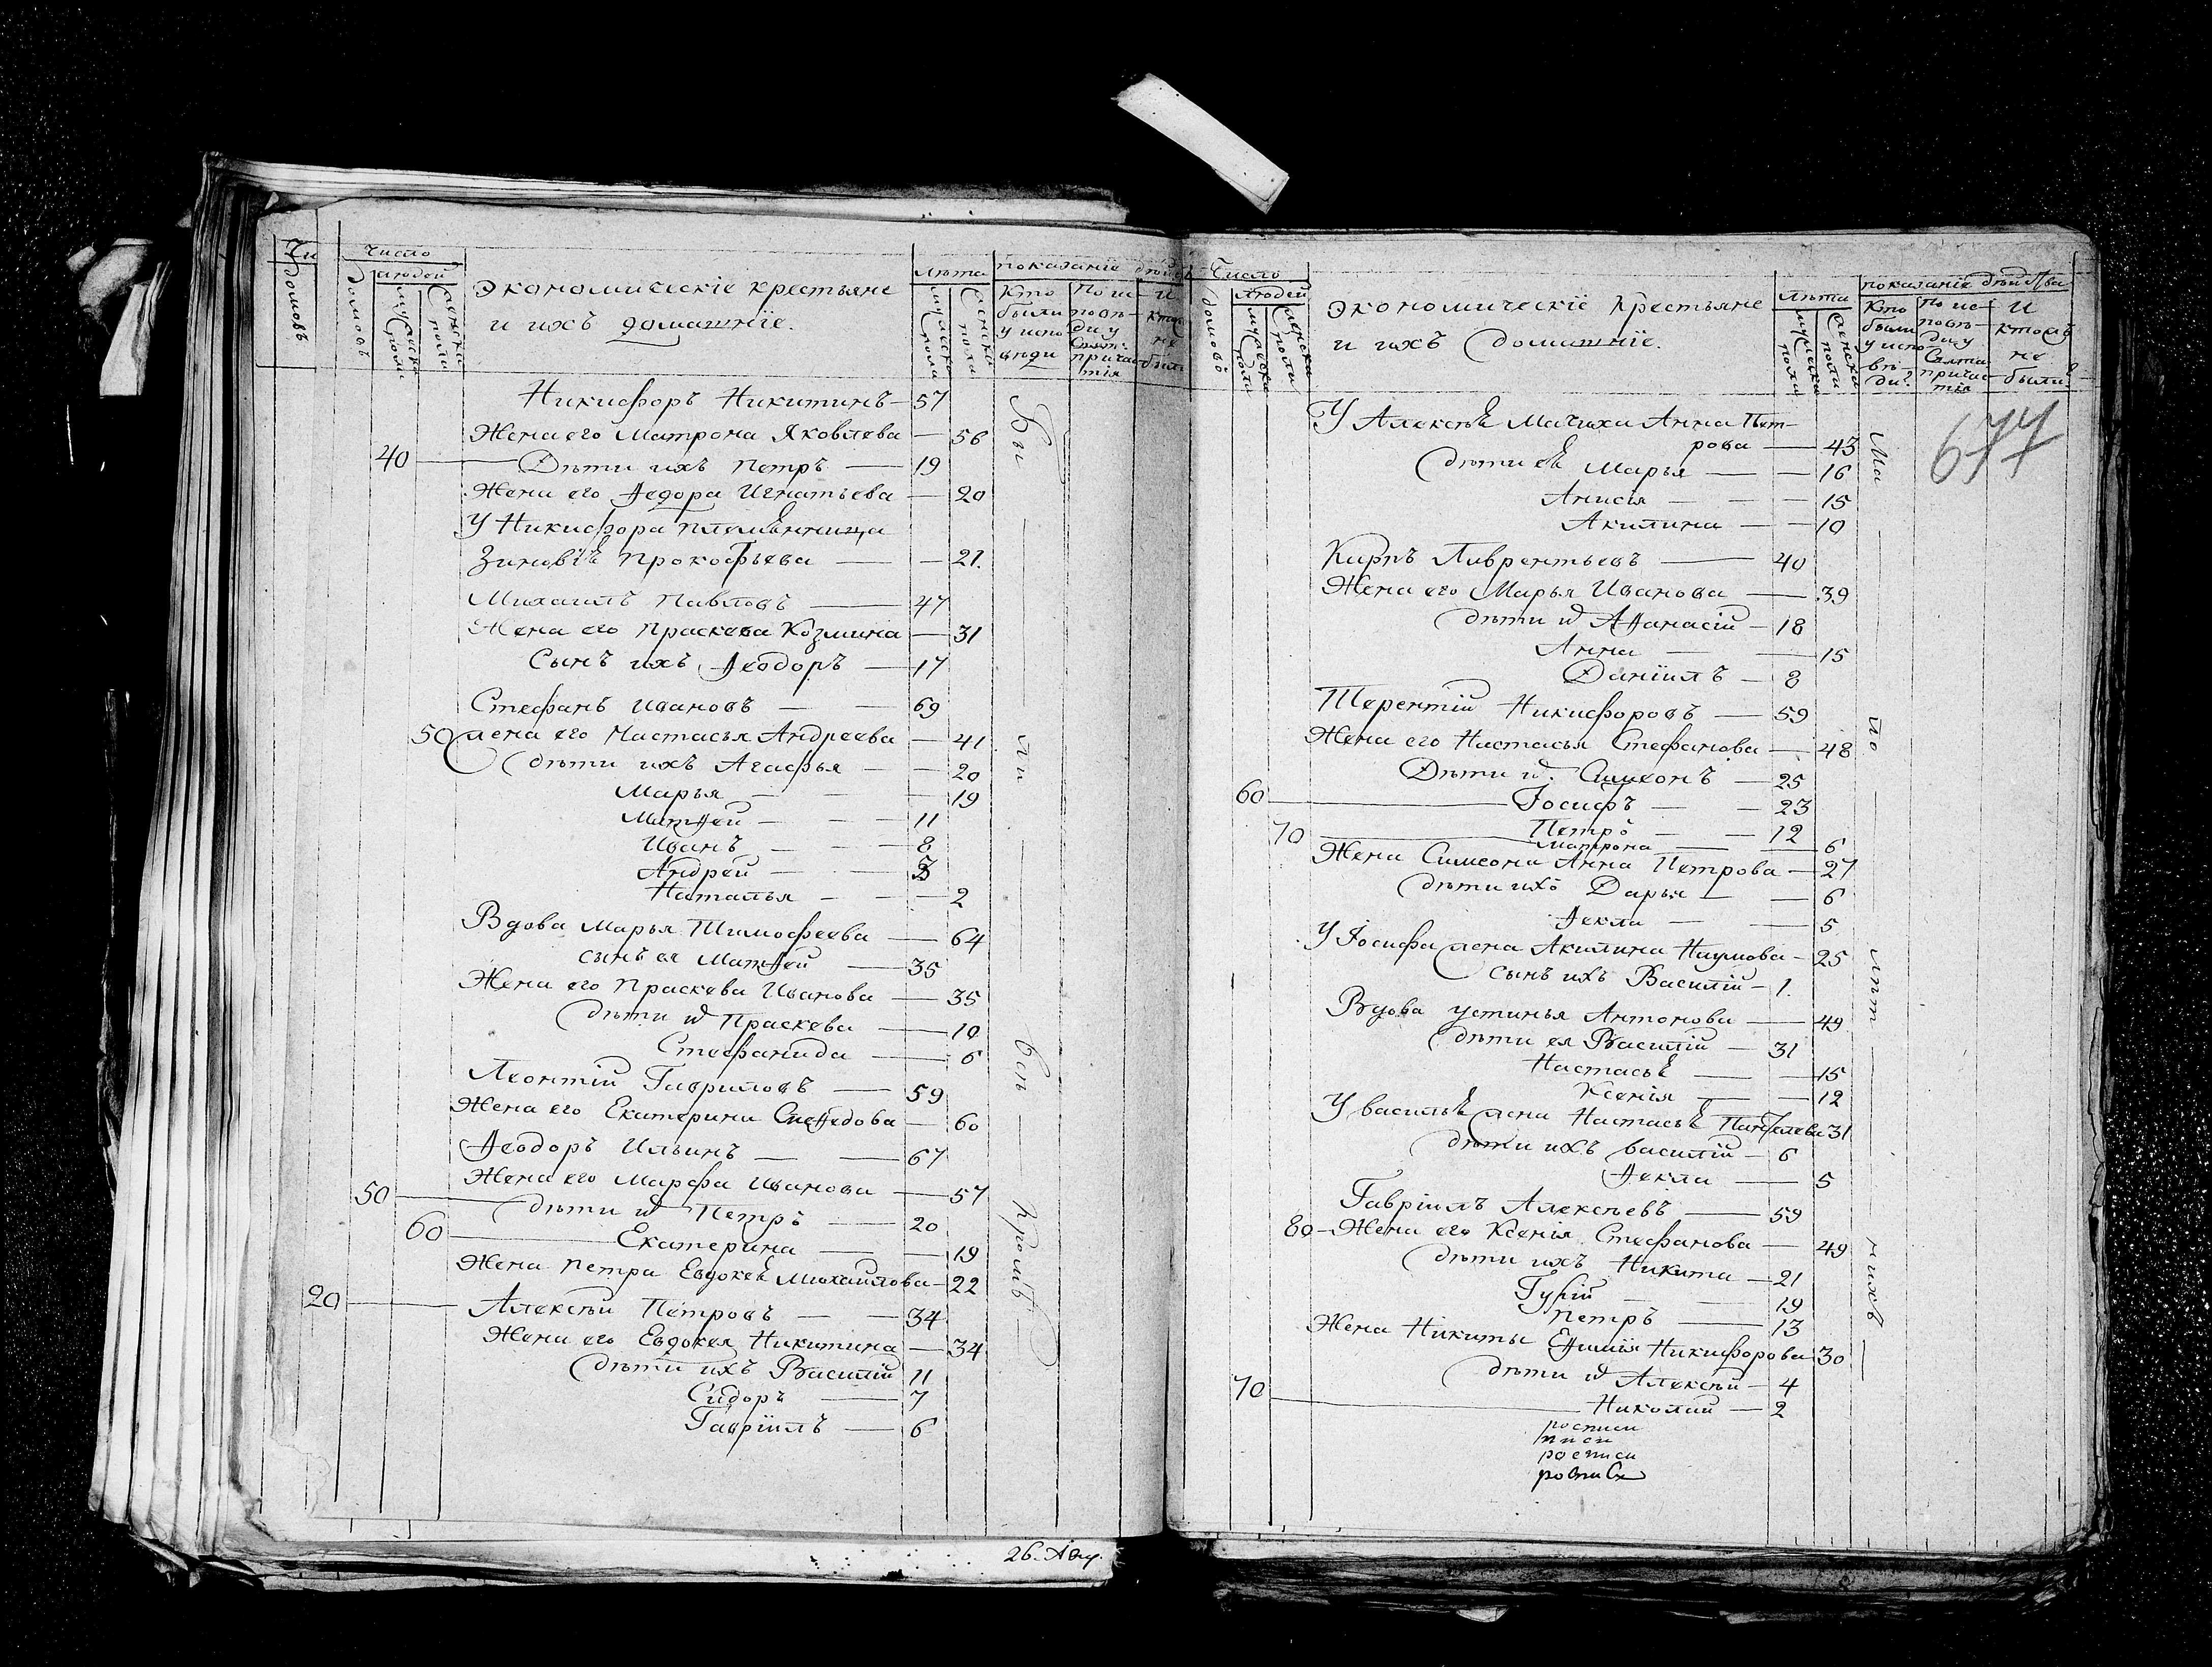 Число
людей
домовъ
мужеска полу
женска полу
Экономическіе крестьяне
и ихъ домашніе.
лѣта
мужеска полу
женска полу
показаніе дѣйс
Кто были у испо вѣди
По ис повѣ ди у Свят: причас тія
И кто не были
Никифоръ Никитинъ — 57
Жена его Матрона Яковлева — 56
40 — Дѣти ихъ Петръ — 19
Жена его Ѳедора Игнатьева — 20
У Никифора племѣнница
Зиновіѣ Прокофьева — 21.
Михаилъ Павловъ — 47
Жена его Праскева Козмина — 31
Сынъ ихъ Ѳеодоръ — 17
Стефанъ Ивановъ — 69
50 жена его Настасья Андреева — 41
дѣти ихъ Агафья — 20
Марья — 19
Матѳей — 11
Иванъ — 8
Андрей — 3
Наталья — 2
Вдова Марья Тимофеева — 64
сынъ ея Матѳей — 35
Жена его Праскева Иванова — 35
дѣти их Праскева — 10
Стефанида — 6
Леонтій Гавриловъ — 59
Жена его Екатерина — 60
Ѳеодоръ Ильинъ — 67
Жена его Марфа Иванова — 57
50 — дѣти их Петръ — 20
60 — Екатерина — 19
Жена Петра Евдокеѣ Михайлова — 22
20 — Алексѣй Петровъ — 34
Жена его Евдокея Никитина — 34
дѣти ихъ Василій 11
Сидоръ — 7
Гавріилъ — 6
26. Авгу.
Число
людей
домовъ
мужеска полу
женска полу
Экономическіе крестьяне
и ихъ домашніе.
лѣта
мужеска полу
женска полу
показаніе дѣйства
Кто были у испо вѣ ди?
По ис повѣ ди у Свята причас тія
И ктомъ не были?
677
У Алексѣѣ Мачиха Анна Пет-
рова — 43
дѣти еѣ Марья — 16
Анисія — 15
Акилина — 10
Карпъ Лаврентьевъ — 40
Жена его Марья Иванова — 39
дѣти их Аѳанасій — 18
Анна — 15
Даніилъ — 8
Терентій Никифоровъ — 59
Жена его Настасья Стефанова — 48
Дѣти их. Симеонъ — 25
60 — Іосифъ — 23
70 — Петръ — 12
Матрона — 6
Жена Симеона Анна Петрова — 27
дѣти ихъ Дарья — 6
Ѳекла — 5
У Іосифа жена Акилина Наумова — 25
сынъ ихъ Василій — 1.
Вдова Устинья Антонова — 49
дѣти ея Василій — 31
Настасьѣ — 15
Ксенія — 12
У Васильѣ жена Настасьѣ 31
дѣти ихъ Василій — 6
Ѳекла — 5
Гавріилъ Алексѣевъ — 59
80 — Жена его Ксенія Стефанова — 49
дѣти ихъ Никита — 21
Гурій — 19
Петръ — 13
Жена Никиты Еѳимія Никифорова 30
дѣти их Алексѣй — 4
70 — Николай — 2
росписи
писи
росписи